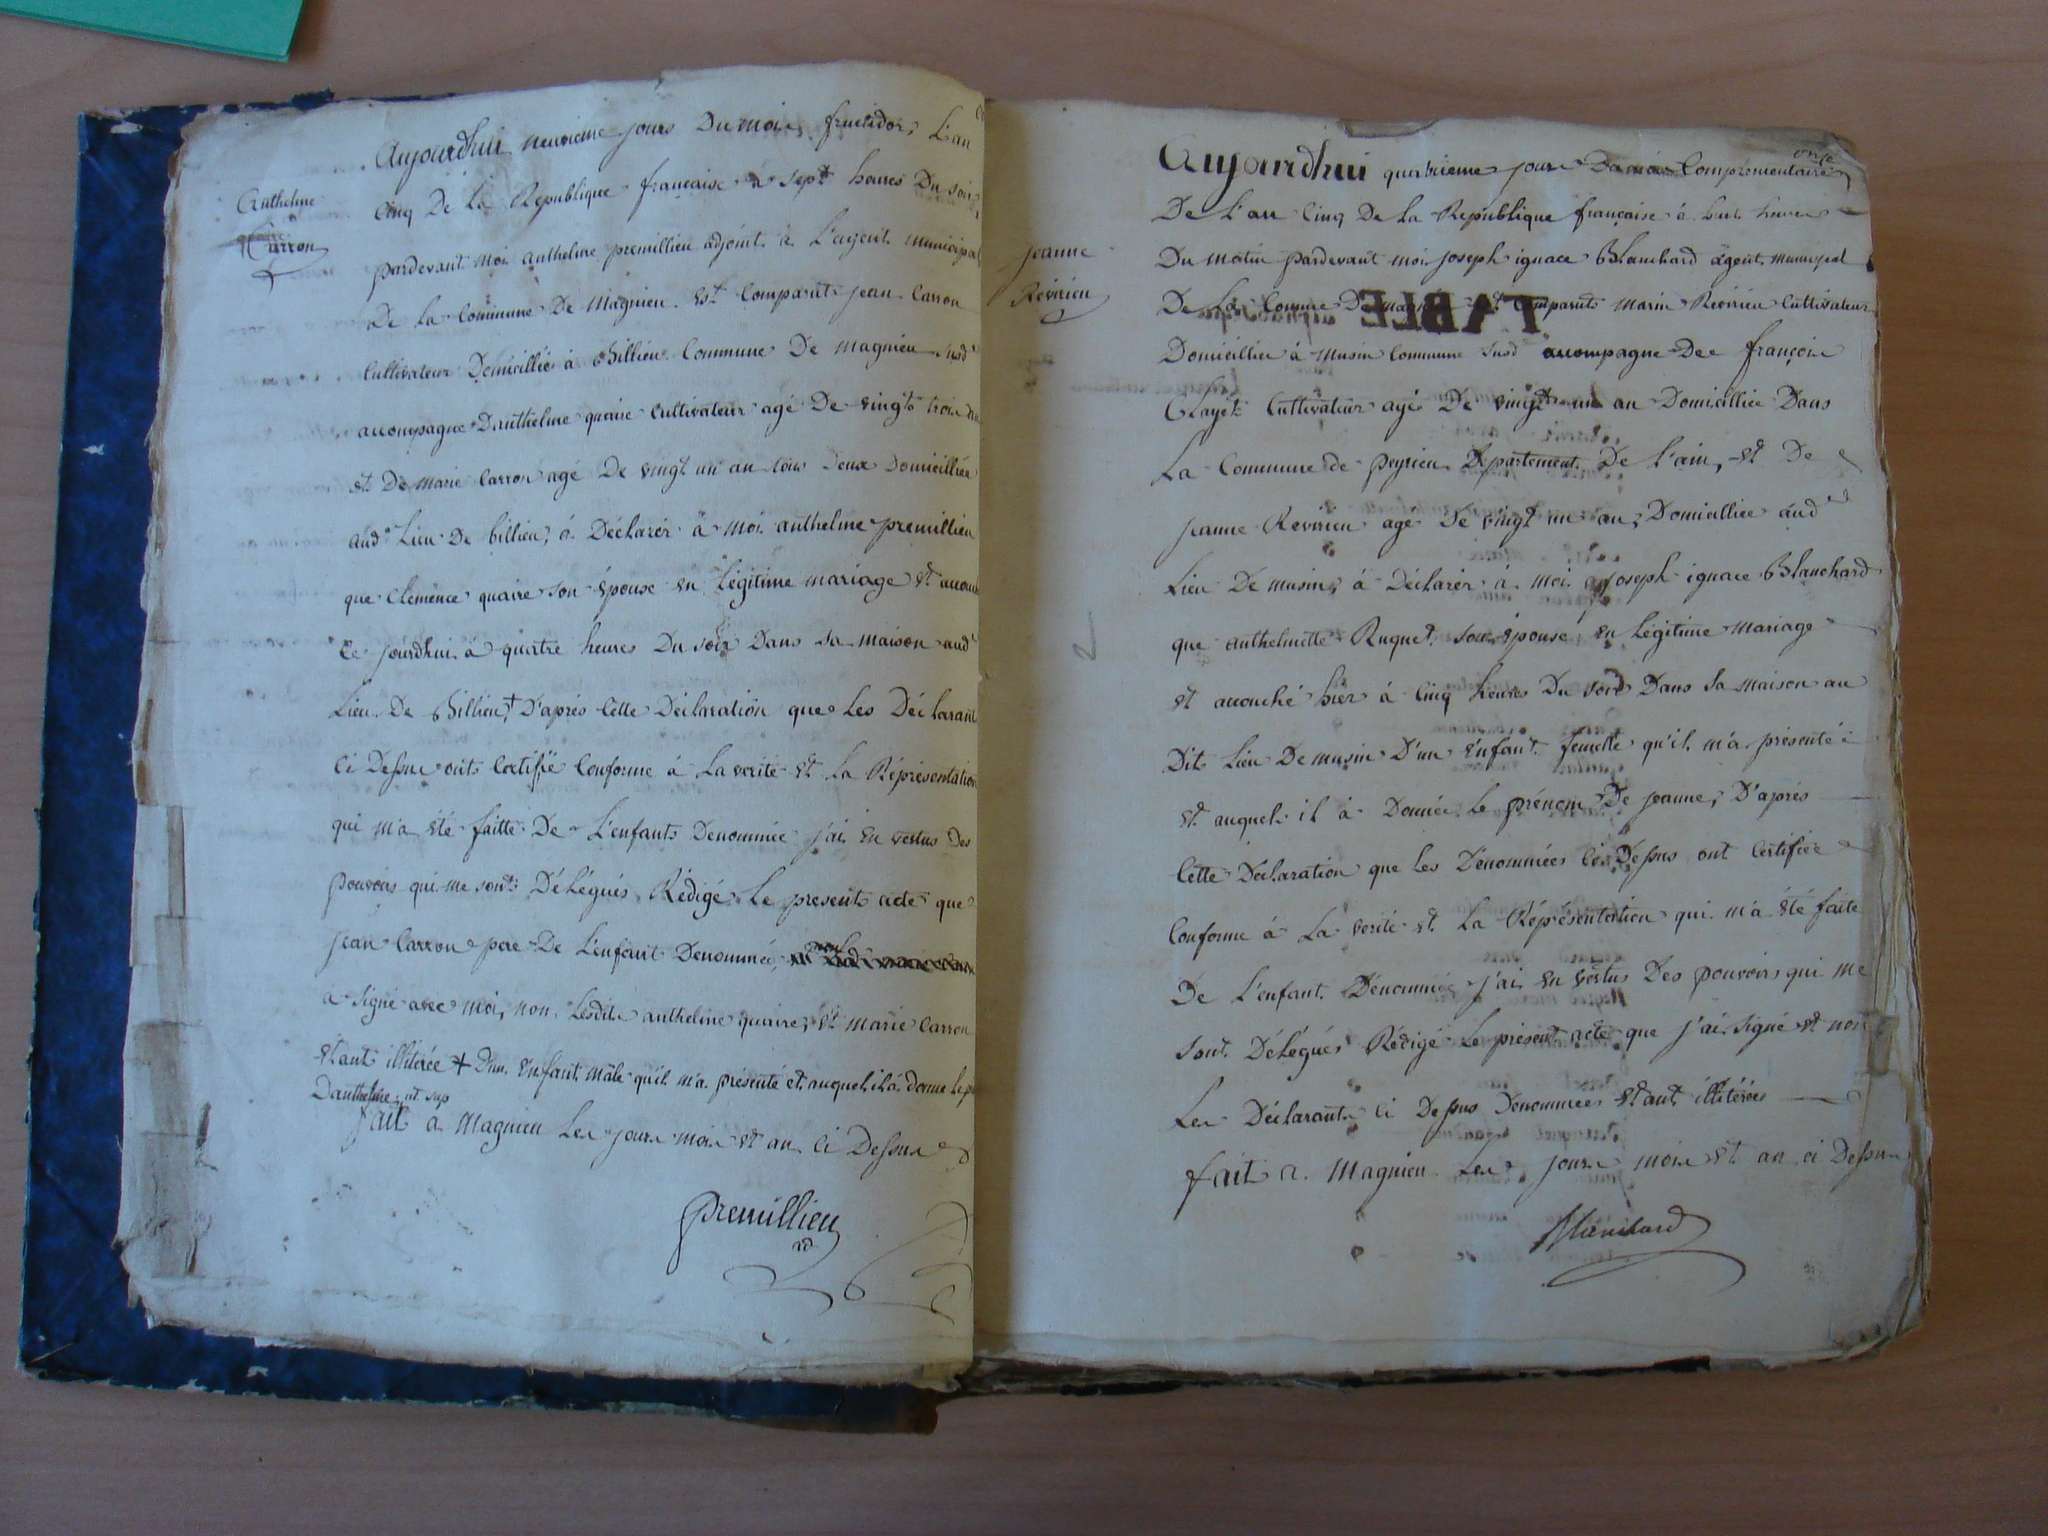 Antheline
Carron
Aujourdhui neuvieme jours Du mois fructidor, L'an
Cinq De la République française à sept heures Du soir
pardevant moi antheline premillieu adjoint à L'agent municipal
De la Commune De Magnieu Est Comparut jean Carron
Cultivateur Domicillié à Billieu Commune De magnieu susd
accompagne D'antheline quaire Cultivateur agé De vingt trois ans
et De marie Carron agé De vingt un an tous Deux Domicilliée
aud Lieu De billieu, à Déclarér à moi antheline premillieu
que Clemence quaire son épouse en Légitime mariage Et accou
Ce jourdhui à quatre heures Du soir Dans sa maison aud
Lieu De Billieu + D'aprés Cette Déclaration que Les Déclarant
Ci Dessus onts Certifié Conforme à La verité Et La Réprésentation
qui m'a été faitte De L'enfants Denommée j'ai En vertus des
pouvoirs qui me sonts Délégués Rédigé Le presents acte que
jean Carron pere De L'enfant Denommée
a signé avec moi, non Lesdits antheline quaire, Et marie Carron
Etant illitérée + D'un Enfant mâle qu'il m'a presenté et auquel il à donné le p
Dantheline ut sup
fait a Magnieu Les jours mois Et an Ci Dessus
premillieu
onze
Jeanne
Révirieu
Aujourdhui quatrieme jours Complémentaire
De L'an Cinq De La République française à huit heures
Du matin pardevant moi joseph ignace Blanchard agent municipal
De La Commune De Comparuts marin Révirieu Cultivateur
TABLE
Domicillié à Musin Commune susd accompagne De françois
Clayet Cultivateur agé De vingt un an Domicilliée Dans
La Commune de peyrieu Departement De L'ain, Et De
jeanne Révirieu agé De vingt un an, Domicilliée aud
Lieu De musin, à Déclarér à moi joseph ignace Blanchard
que anthelmette Ruquet son épouse en Légitime mariage
Et accouché hier à Cinq heures Du soir Dans sa maison au
Dit Lieu De musin D'un Enfant femelle qu'il m'a présenté
Et auquel il à Donnée Le prénom De jeanne, D'aprés
Cette Déclaration que les Dénommées Ci Dessus ont Certifiée
Conforme à La verité Et La Réprésentation qui m'a été faite
De L'enfant Dénommée j'ai En vertus Des pouvoirs qui me
sont Délégués Rédigé Le présent acte que j'ai signé Et non
Les Déclarants Ci Dessus Denommées Etant illitérées
fait a Magnieu Les jours mois Et an ci Dessus
Blanchard